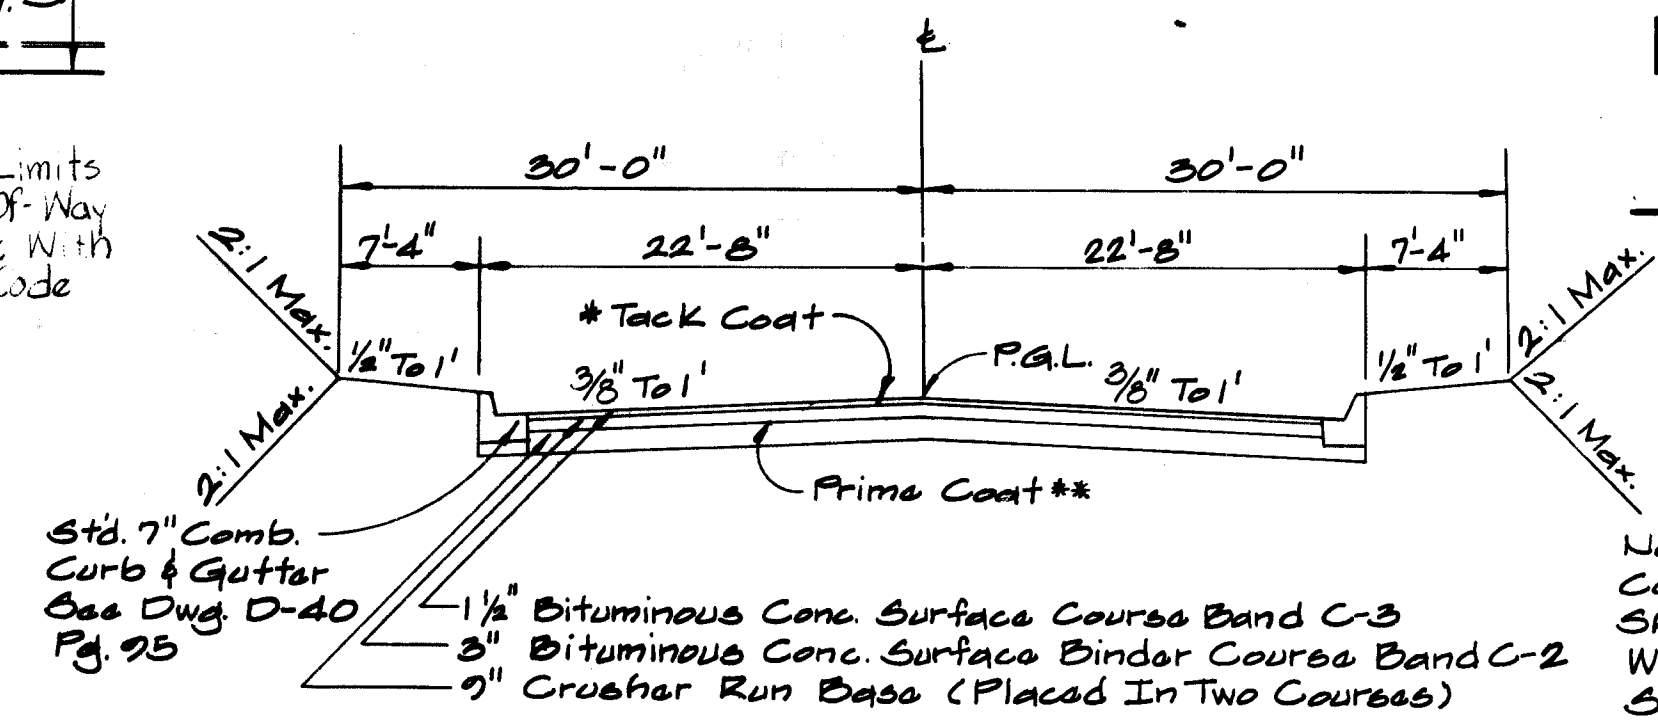 ℄
Limits
Of-Way
With
Code
30'-0" 30'-0"
7'-4" 22'-8" 22'-8" 7'-4"
2:1 Max. 2:1 Max.
* Tack Coat
P.G.L.
1/2" To 1' 3/8" To 1' 3/8" To 1' 1/2" To 1'
2:1 Max. 2:1 Max.
Prime Coat **
Std. 7" Comb.
Curb & Gutter
See Dwg. D-40
Pg. 95
1 1/2" Bituminous Conc. Surface Course Band C-3
3" Bituminous Conc. Surface Binder Course Band C-2
9" Crusher Run Base (Placed In Two Courses)